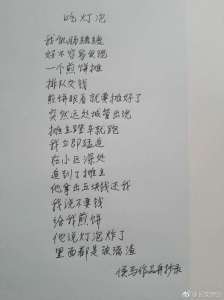 吃灯泡
我饥肠辘辘
好不容易发现
一个煎饼摊
排队交钱
煎饼眼看就要摊好了
突然远处城管出现
摊主蹬车就跑
我立即猛追
在小区深处
追到了摊主
他拿出五块钱还我
我说不要钱
给我煎饼
他说灯泡炸了
里面都是玻璃渣
侯马作品并抄录